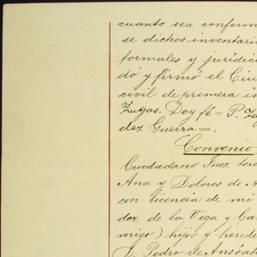 cuanto sea conform
se dichos inventari
formales y jurídic
dó y firmó el Ciu
civil de primera i
Zuzas. Doy fé = P. Ze
dez Guerra =.
Convenio
Ciudadano Juez
Ana y Dolores de A
con licencia de mi
dox de la Vega y Ca
migo) hijos y herede
D. Pedro de Ansoat